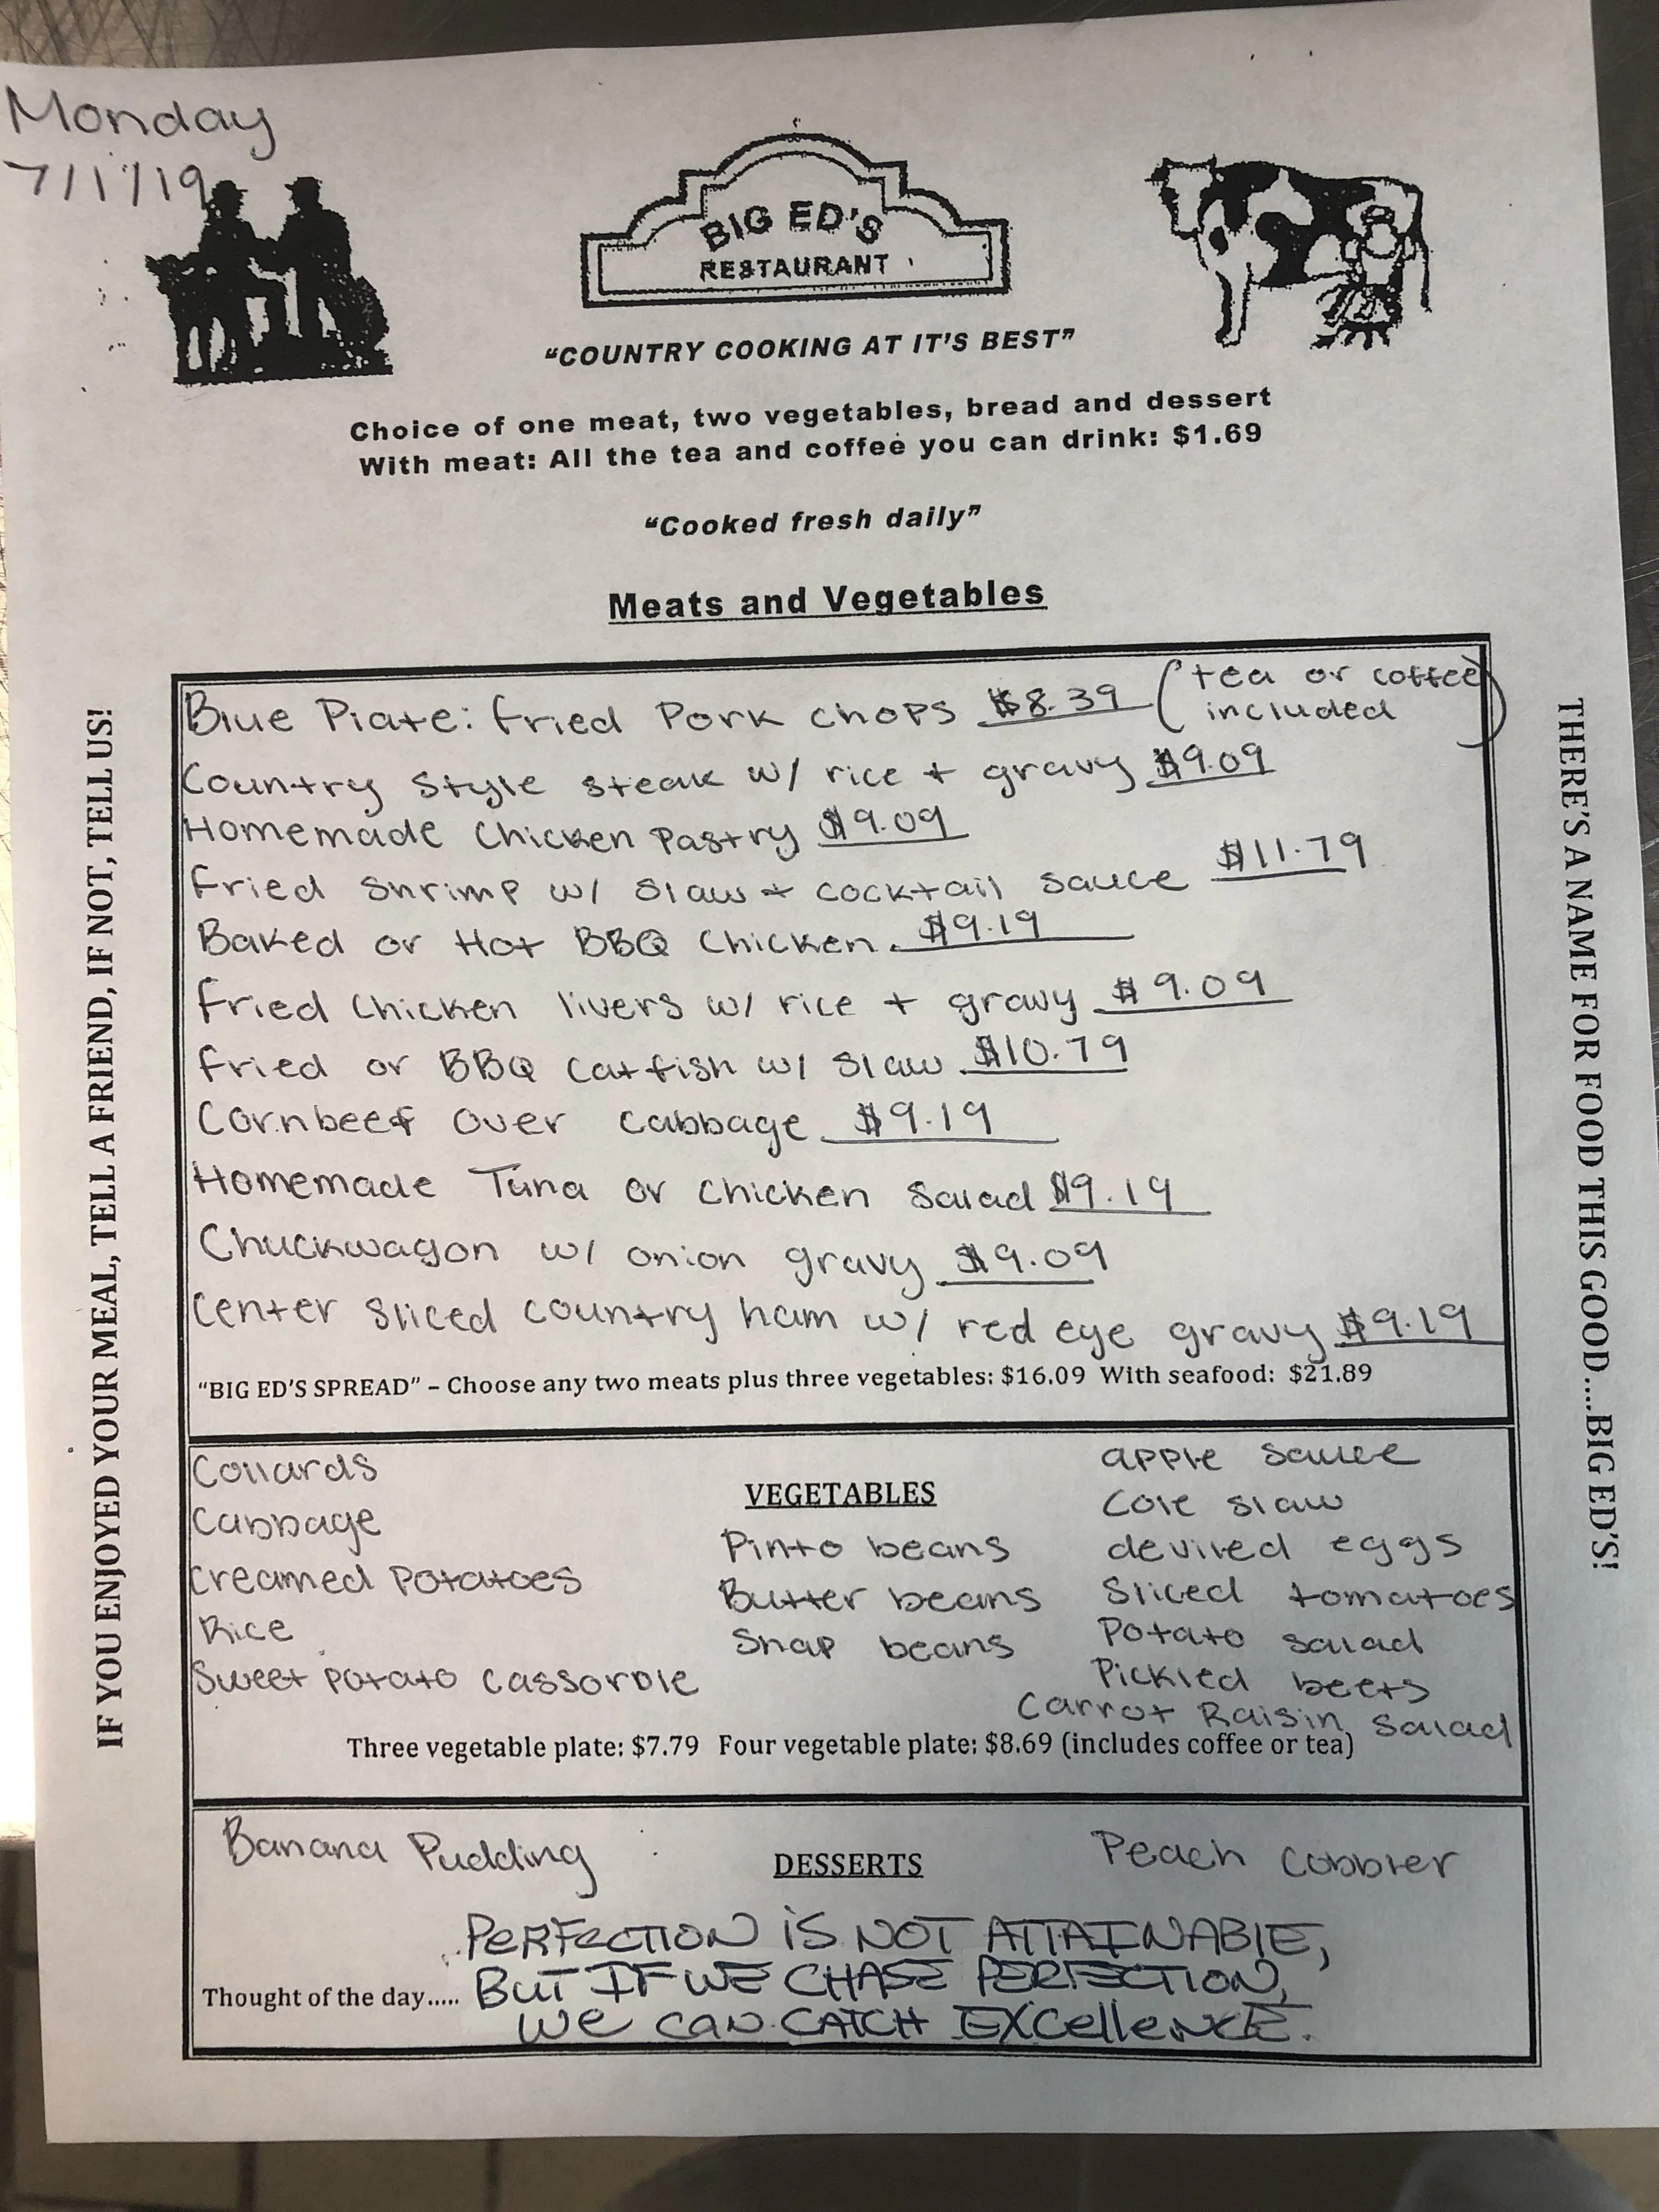 Monday
7/1/19
BIG ED'S
RESTAURANT
"COUNTRY COOKING AT IT'S BEST"
Choice of one meat, two vegetables, bread and dessert
With meat: All the tea and coffee you can drink: $1.69
"Cooked fresh daily"
Meats and Vegetables
Blue Plate: Fried Pork Chops $8.39 (tea or coffee included)
Country Style steak w/ rice + gravy $9.09
Homemade Chicken Pastry $9.09
Fried Shrimp w/ Slaw + cocktail sauce $11.79
Baked or Hot BBQ Chicken. $9.19
Fried Chicken livers w/ rice + gravy $9.09
Fried or BBQ Catfish w/ Slaw $10.79
Cornbeef over cabbage $9.19
Homemade Tuna or Chicken Salad $9.19
Chuckwagon w/ onion gravy $9.09
Center Sliced country ham w/ red eye gravy $9.19
"BIG ED'S SPREAD" – Choose any two meats plus three vegetables: $16.09 With seafood: $21.89
VEGETABLES
Collards
Cabbage
Creamed Potatoes
Rice
Sweet Potato Cassorole
Pinto beans
Butter beans
Snap beans
apple sauce
Cole slaw
deviled eggs
Sliced tomatoes
Potato salad
Pickled beets
Carrot Raisin Salad
Three vegetable plate: $7.79 Four vegetable plate: $8.69 (includes coffee or tea)
DESSERTS
Banana Pudding
Peach Cobbler
Thought of the day..... PERFECTION IS NOT ATTAINABLE,
BUT IF WE CHASE PERFECTION,
WE CAN CATCH EXCELLENCE.
IF YOU ENJOYED YOUR MEAL, TELL A FRIEND, IF NOT, TELL US!
THERE'S A NAME FOR FOOD THIS GOOD....BIG ED'S!